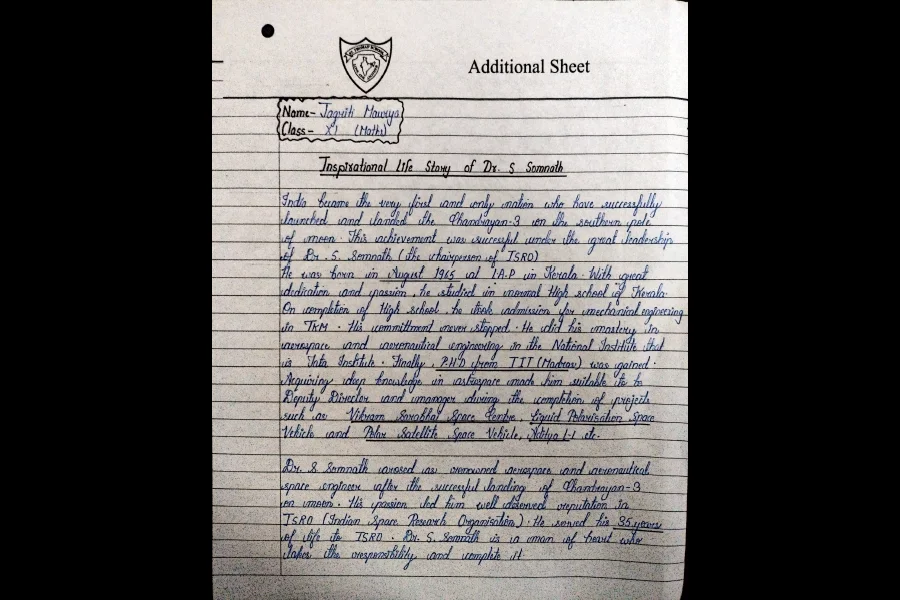 Additional Sheet
Name- Jagriti Maurya
Class- XI (Maths)
Inspirational Life Story of Dr. S Somnath
India became the very first and only nation who have successfully
launched and landed the Chandrayan-3 on the southern pole
of moon. This achievement was successful under the great leadership
of Dr. S. Somnath (the chairperson of ISRO)
He was born in August 1965 at I.A.P in Kerala. With great
dedication and passion, he studied in normal High school of Kerala.
On completion of High school, he took admission for mechanical engineering
in TKM. His committment never stopped. He did his mastery in
aerospace and aeronautical engineering in the National Institute that
is Tata Institute. Finally, P.H.D from IIT (Madras) was gained.
Acquiring deep knowledge in astrospace made him suitable to be
Deputy Director and manager during the completion of projects
such as Vikram Sarabhai Space Centre, Liquid Polarisation Space
Vehicle and Polar Satellite Space Vehicle, Aditya L-1 etc.
Dr. S Somnath arosed as renowned aerospace and aeronautical
space engineer after the successful landing of Chandrayan-3
on moon. His passion led him well deserved reputation in
ISRO (Indian Space Research Organisation). He served his 35 years
of life to ISRO. Dr. S. Somnath is a man of heart who
takes the responsibility and complete it